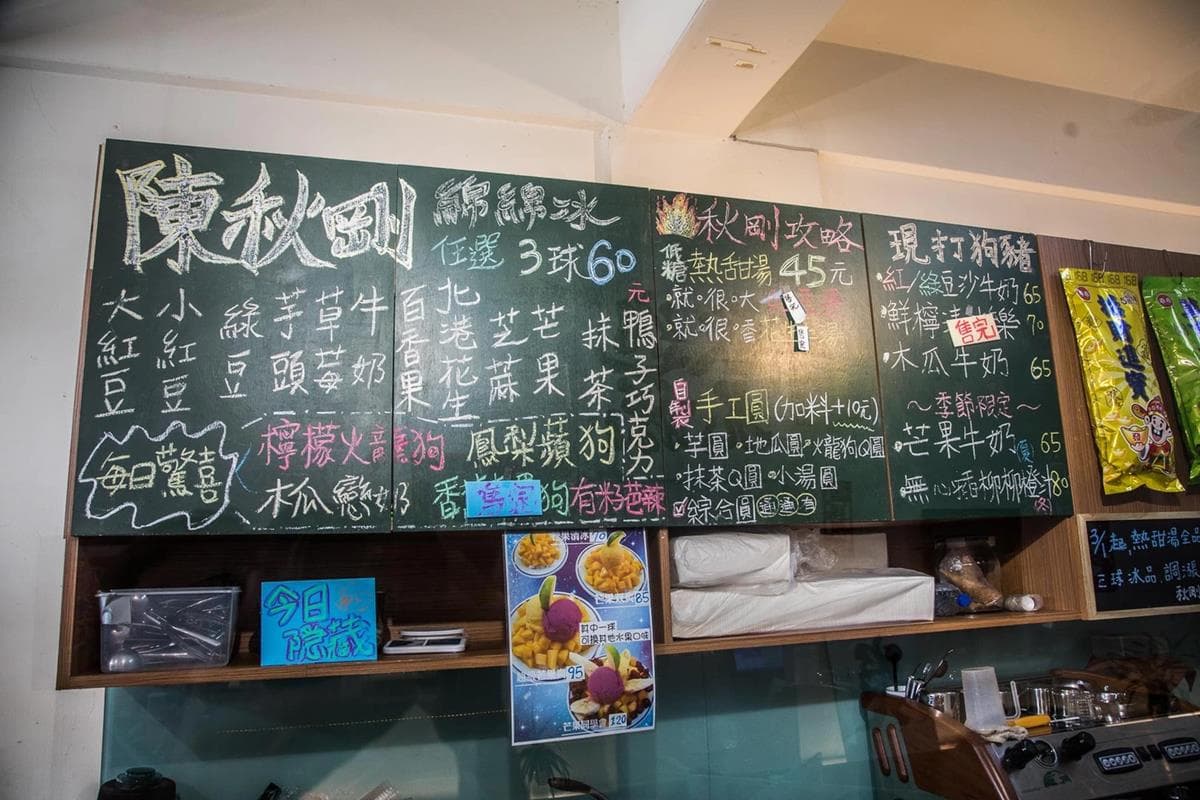 陳秋剛
綿綿冰
任選3球60元
大紅豆
小紅豆
綠豆
芋頭
草莓
牛奶
百香果
北港花生
芝蔴
芒果
抹茶
鴨子巧克力
每日驚喜
檸檬火龍狗
鳳梨蘋狗
木瓜戀奶
香
狗
有籽芭辣
秋剛攻略
低糖熱甜湯45元
·就·很·大
·就·很·香
售完
自製手工圓(加料+10元)
·芋圓·地瓜圓·火龍狗Q圓
·抹茶Q圓·小湯圓
綜合圓
現打狗豬
·紅/綠豆沙牛奶65
·鮮檸 樂70
售完
·木瓜牛奶65
~季節限定~
·芒果牛奶夏65
·無心香柳柳橙汁80
冬
168 168 168
今日隱藏
芒果清冰70
85
其中一球
可換其他水果口味
95
120
3/1起,熱甜湯
三球冰品,調漲